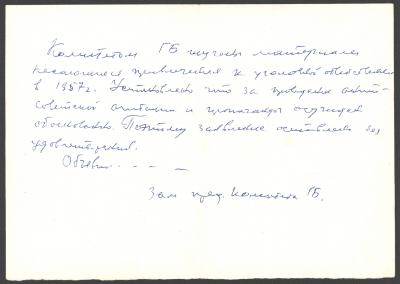 Комитетом ГБ изучены материалы
касающиеся привлечения к уголовной ответственности
в 1957г. Установлено что за проведение анти-
советской агитации и пропаганды осужден
обоснованно. Поэтому заявление оставлено без
удовлетворения.
Объяви . . - -
Зам пред. Комитета ГБ.